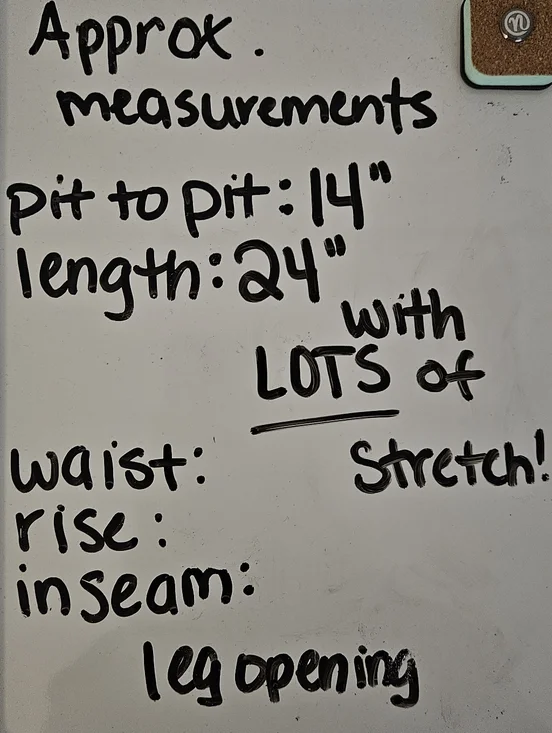 Approx.
measurements
pit to pit: 14"
length: 24"
with
LOTS of
Stretch!
waist:
rise:
inseam:
leg opening